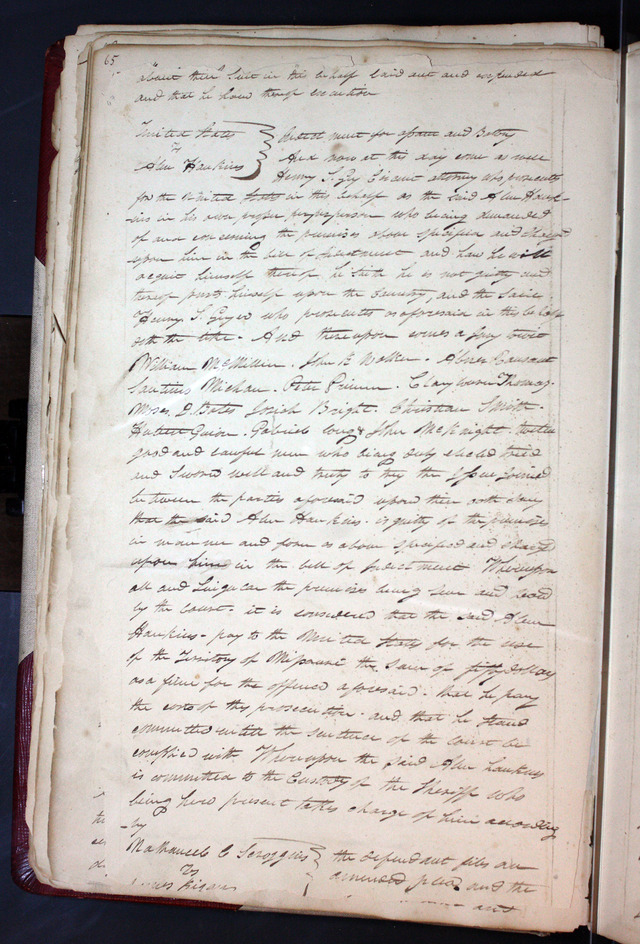 65
about their Suit in this behalf laid out and expended
and that he have thereof execution
United States
vs
Abn Hawkins
Indictment for assault and Battery
And now at this day come as well
Henry S. Geyer Circuit attorney who prosecutes
for the United States in this behalf as the said Abn Hawk-
ins in his own proper person who being demanded
of and concerning the premises above specified and charged
upon him in the bill of Indictment, and how he will
acquit himself thereof he saith he is not guilty and
thereof puts himself upon the Country, and the said
Henry S. Geyer who prosecutes as aforesaid in this behalf
doth the like. And thereupon comes a Jury towit
William McMillin. John Walker. Abner
Michau. Peter Primm. Clayborn Thomas.
Moses D. Bates Josiah Bright. Christian Smith.
Hubert Guion. Gabriel Long & John McKnight. twelve
good and lawful men who being duly elected tried
and Sworn well and truly to try the Issue Joined
between the parties aforesaid upon their oath Say
that the said Abn Hawkins. is guilty of the premises
in manner and form as above specified and charged
upon him in the bill of Indictment Whereupon
all and Singular the premises being seen and heard
by the Court. it is considered that the said Abn
Hawkins - pay to the United States for the use
of the Territory of Missouri the Sum of fifty dollars
as a fine for the offence aforesaid. that he pay
the costs of this prosecution. and that he stand
committed until the sentence of the Court be
complied with Whereupon the said Abn Hawkins
is committed to the Custody of the Sheriff who
being here present takes charge of him according
-ly
Nathaniel C Scroggins
vs
the defendant files an
amended plea and the
and